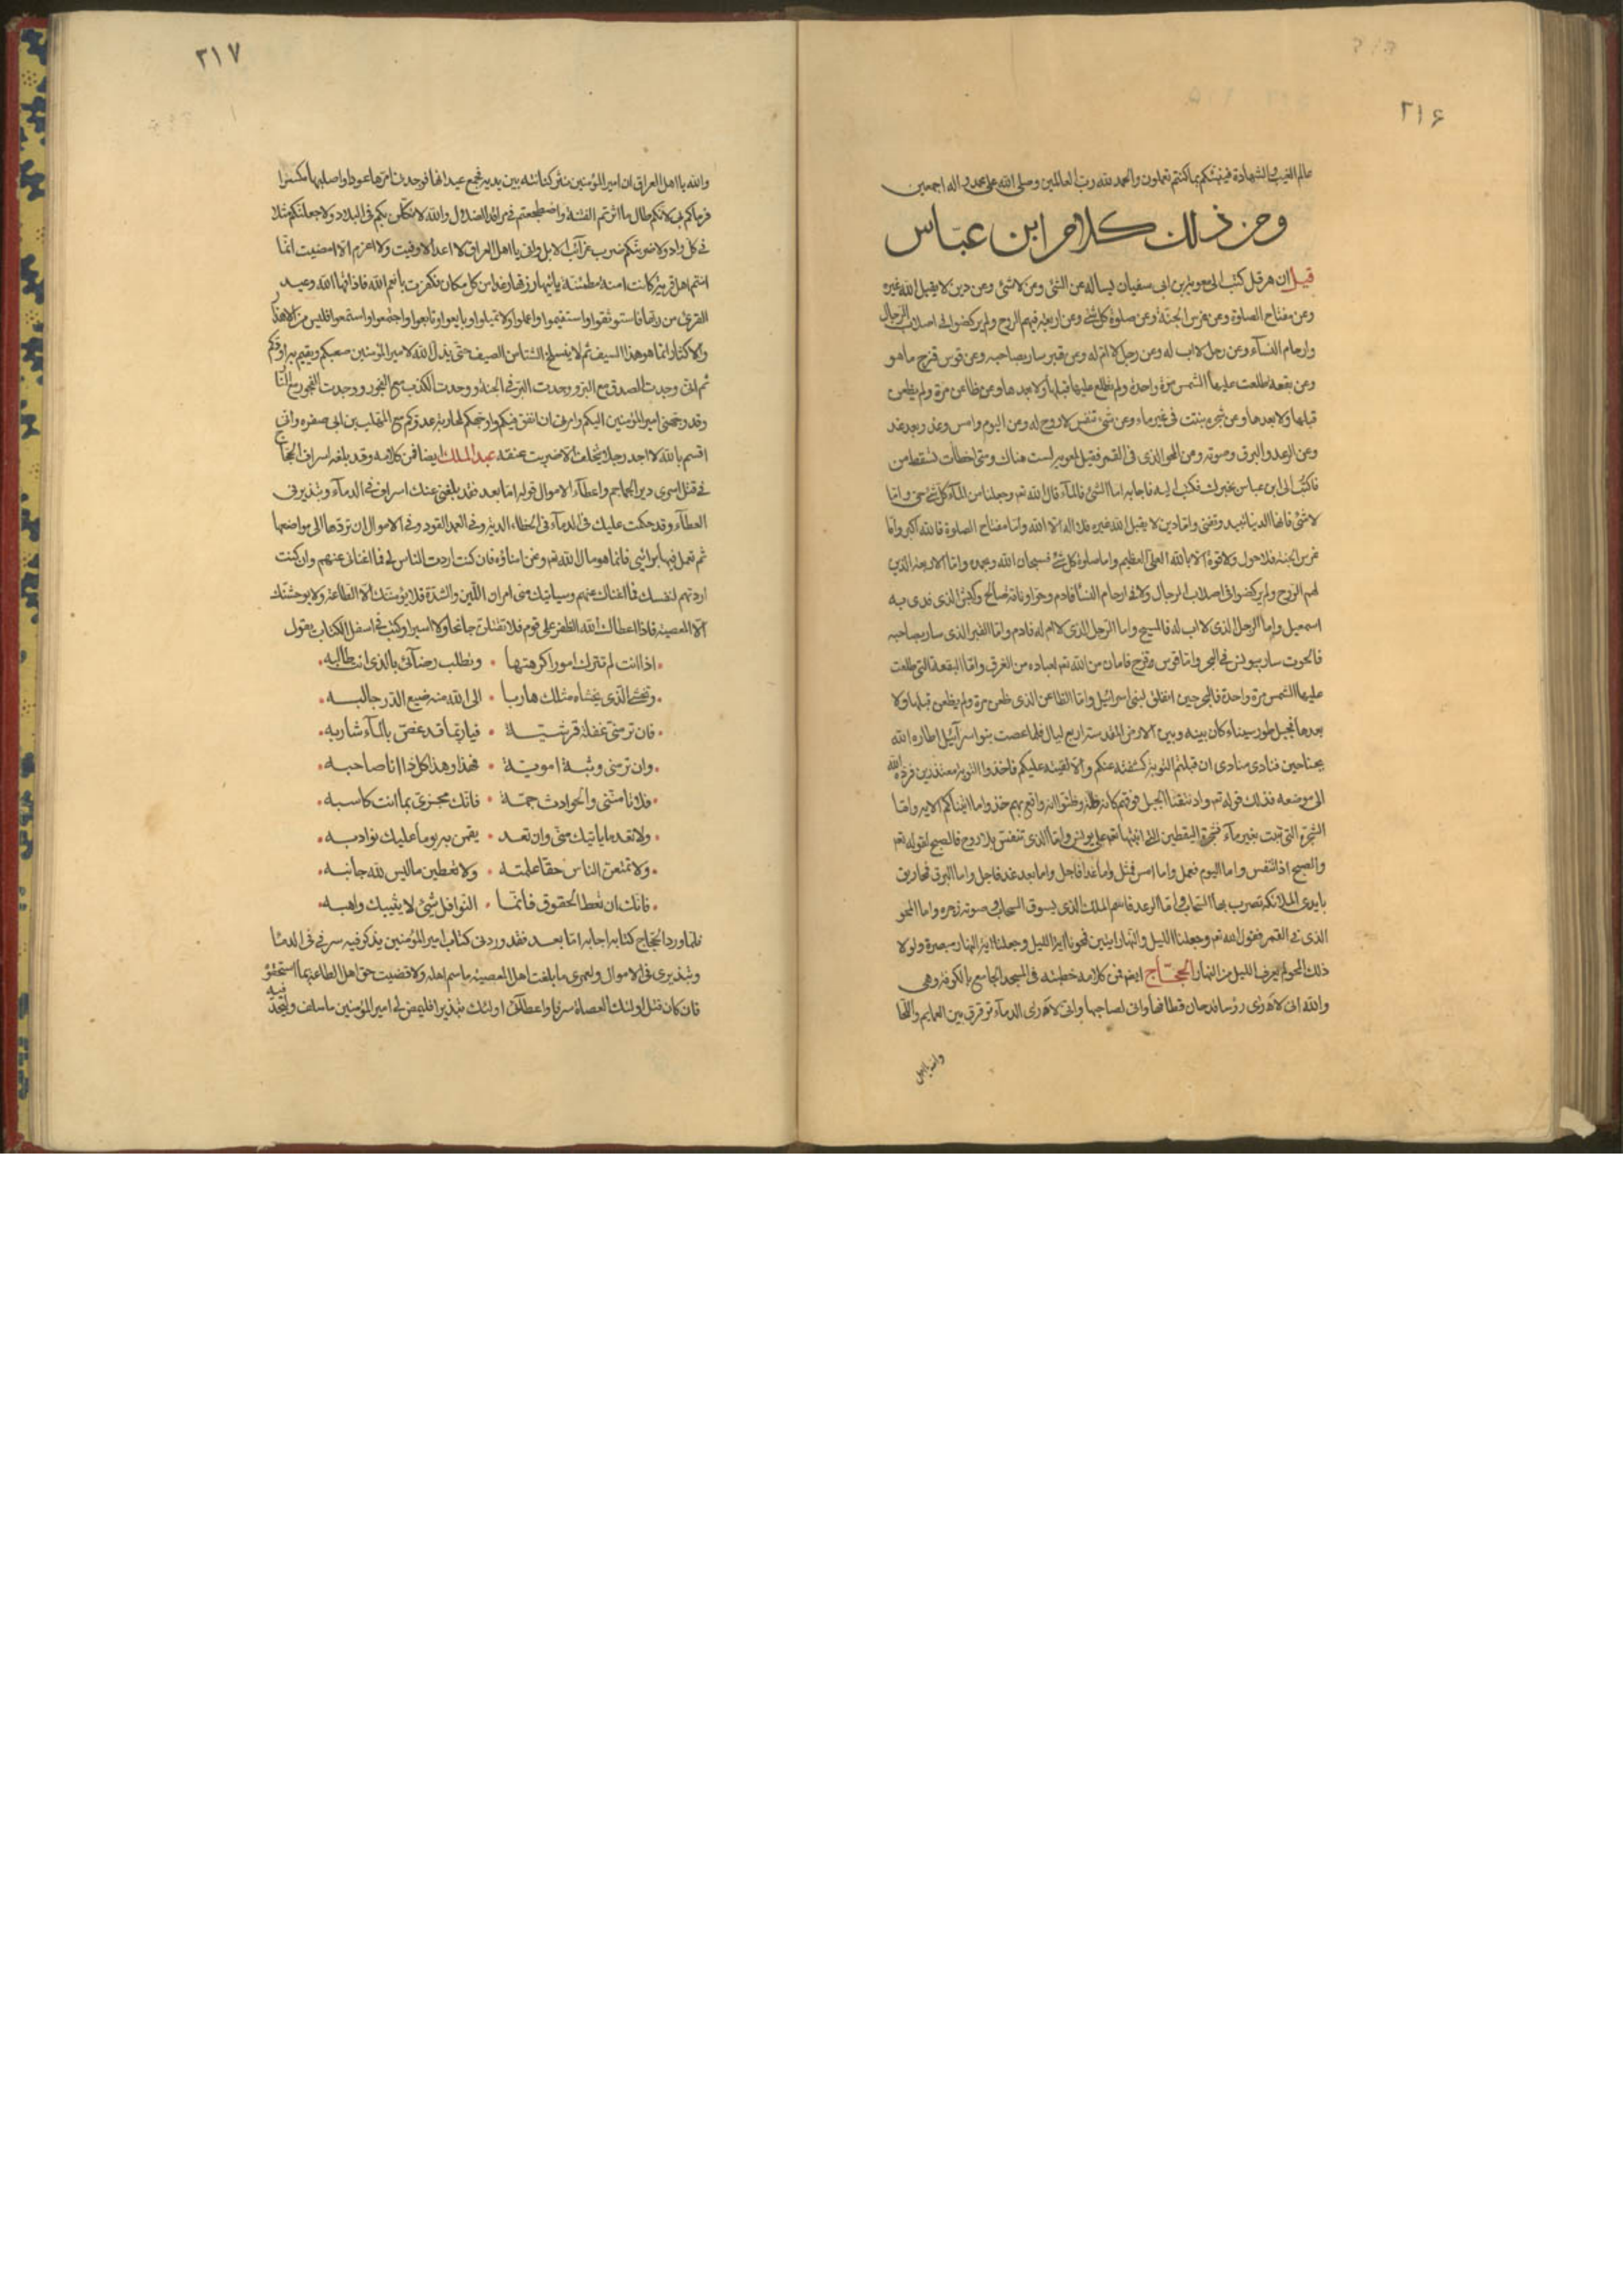 ٢١۶
عالم الغيب والشهادة فينبئكم بما كنتم تعملون والحمد لله رب العالمين وصلى الله على محمد واله اجمعين
ومن ذلك كلام ابن عباس
قيل ان هرقل كتب الى معوية بن ابى سفيان يساله عن الشئ وعن لا شئ وعن دين لا يقبل الله غيره
وعن مفتاح الصلوة وعن غرس الجنة وعن صلوة كل شئ وعن اربعة فيهم الروح ولم يركضوا فى اصلاب الرجال
وارحام النسآء وعن رجل لا اب له وعن رجل لا ام له وعن قبر سار بصاحبه وعن قوس قزح ما هو
وعن بقعة طلعت عليها الشمس مرة واحدة ولم تطلع عليها قبلها ولا بعدها وعن ظاعن ظعن مرة ولم يظعن
قبلها ولا بعدها وعن شجرة نبتت فى غير ماء وعن شئ تنفس لا روح له وعن اليوم وامس وغد وبعد غد
وعن الرعد والبرق وصوته وعن المحو الذى فى القمر فقيل لمعوية لست هناك ومتى اخطأت تسقط من
فاكتب الى ابن عباس يخبرك فكتب اليه فاجابه اما الشئ فالمآء قال الله تع وجعلنا من المآء كل شئ حى واما
لا شئ فانها الدنيا تبيد وتفنى واما دين لا يقبل الله غيره فلا اله الا الله واما مفتاح الصلوة فالله اكبر واما
غرس الجنة فلا حول ولا قوة الا بالله العلى العظيم واما صلوة كل شئ فسبحان الله وبحمده واما الاربعة الذين
لهم الروح ولم يركضوا فى اصلاب الرجال ولا فى ارحام النسا فادم وحوا وناقة صالح وكبش الذى فدى به
اسمعيل واما الرجل الذى لا اب له فالمسيح واما الرجل الذى لا ام له فادم واما القبر الذى سار بصاحبه
فالحوت سار بيونس فى البحر واما قوس قزح فامان من الله تع لعباده من الغرق واما البقعة التى طلعت
عليها الشمس مرة واحدة فالبحر حين انفلق لبنى اسرائيل واما الظاعن الذى ظعن مرة ولم يظعن قبلها ولا
بعدها فجبل طور سيناء كان بينه وبين الارض المقدسة اربع ليال فلما عصت بنو اسرآئيل اطاره الله
بجناحين فنادى منادى ان قبلتم التورية كشفته عنكم والا لقيته عليكم فاخذوا التورية معتذرين فرده الله
الى موضعه فذلك قوله تع واذ نتقنا الجبل فوقهم كانه ظلة وظنوا انه واقع بهم خذوا ما اتيناكم الاية واما
الشجرة التى نبتت بغير مآء فشجرة اليقطين التى انبتها الله على يونس واما الذى تنفس بلا روح فالصبح لقوله تع
والصبح اذا تنفس واما اليوم فعمل واما امس فمثل واما غدا فاجل واما بعد غد فامل واما البرق فمخاريق
بايدى الملائكة تضرب بها السحاب واما الرعد فاسم الملك الذى يسوق السحاب وصوته زجره واما المحو
الذى فى القمر فقول الله تع وجعلنا الليل والنهار ايتين فمحونا اية الليل وجعلنا اية النهار مبصرة ولولا
ذلك المحو لم يعرف الليل من النهار الحجاج ايضه فمن كلامه خطبته فى المسجد الجامع بالكوفة وهى
والله انى لارى رؤسا قد حان قطافها وانى لصاحبها وانى لارى الدمآء ترقرق بين العمايم واللحا
والله يا اهل
٣١٧
والله يا اهل العراق ان امير المؤمنين نثر كنانته بين يديه فعجم عيدانها فوجدنى امرها عودا واصلبها مكسرا
فرماكم بى لانكم طال ما اثرتم الفتنة واضطجعتم فى مراقد الضلال والله لانكلن بكم فى البلاد ولاجعلنكم مثلا
فى كل واد ولاضربنكم ضرب غرآئب الابل وانى يا اهل العراق لا اعد الا وفيت ولا اعزم الا امضيت انما
انتم اهل قرية كانت امنة مطمئنة ياتيها رزقها رغدا من كل مكان فكفرت بانعم الله فاذاقها الله وعيد
القرى من ربها فاستوثقوا واستقيموا واعملوا ولا تميلوا وبايعوا وتابعوا واجتمعوا واستمعوا فليس منى الاهذار
والاكثار انما هو هذا السيف ثم لا ينسلخ الشتا من الصيف حتى يذل الله لامير المؤمنين صعبكم ويقيم به اودكم
ثم انى وجدت الصدق مع البر ووجدت البر فى الجنة ووجدت الكذب مع الفجور ووجدت الفجور مع النار
وقد وجهنى امير المؤمنين اليكم وامرنى ان انفق فيكم واوجهكم لمحاربة عدوكم مع المهلب بن ابى صفره وانى
اقسم بالله لا اجد رجلا يتخلف الا ضربت عنقه عبد الملك ايضا فمن كلامه وقد بلغه اسراف الحجاج
فى قتل اسرى دير الجماجم واعطآء الاموال قوله اما بعد فقد بلغنى عنك اسراف فى الدمآء وتبذير فى
العطآء وقد حكمت عليك فى الدمآء فى الخطاء الدية وفى العمد القود وفى الاموال ان تردها الى مواضعها
ثم تعمل فيها برائى فانما هو مال الله تع ونحن امناؤه فان كنت اردت الناس لى فما اغنانى عنهم وان كنت
اردتهم لنفسك فما اغناك عنهم وسياتيك منى امران اللين والشدة فلا يؤنسنك الا الطاعة ولا يوحشنك
الا المعصية فاذا اعطاك الله الظفر على قوم فلا تقتلن جانحا ولا اسيرا وكتب فى اسفل الكتاب يقول
اذا انت لم تترك امورا كرهتها • وتطلب رضآئى بالذى انت طالبه
وتخش الذى يخشاه مثلك هاربا • الى الله منه ضيع الدر جالبه
فان تر منى غفلة قرشية • فيا ربما قد غص بالمآء شاربه
وان تر منى وثبة اموية • فهذا وهذا كل ذا انا صاحبه
فلا تامننى والحوادث جمة • فانك مجزى بما انت كاسبه
ولا تعد ما ياتيك منى وان تعد • يقمن به يوما عليك نوادبه
ولا تمنعن الناس حقا علمته • ولا تعطين ما ليس لله جانبه
فانك ان تعط الحقوق فانما • النوافل شئ لا يثيبك واهبه
فلما ورد الحجاج كتابه اجابه اما بعد فقد ورد فى كتاب امير المؤمنين يذكر فيه سرفى فى الدما
وتبذيرى فى الاموال ولعمرى ما بلغت اهل المعصية ما سم اهله ولا قضيت حق اهل الطاعة بما استحقوا
فان كان قتل اولئك العصاة سرفا واعطائى اولئك تبذيرا فليمض لى امير المؤمنين ما سلف وليحد فيه